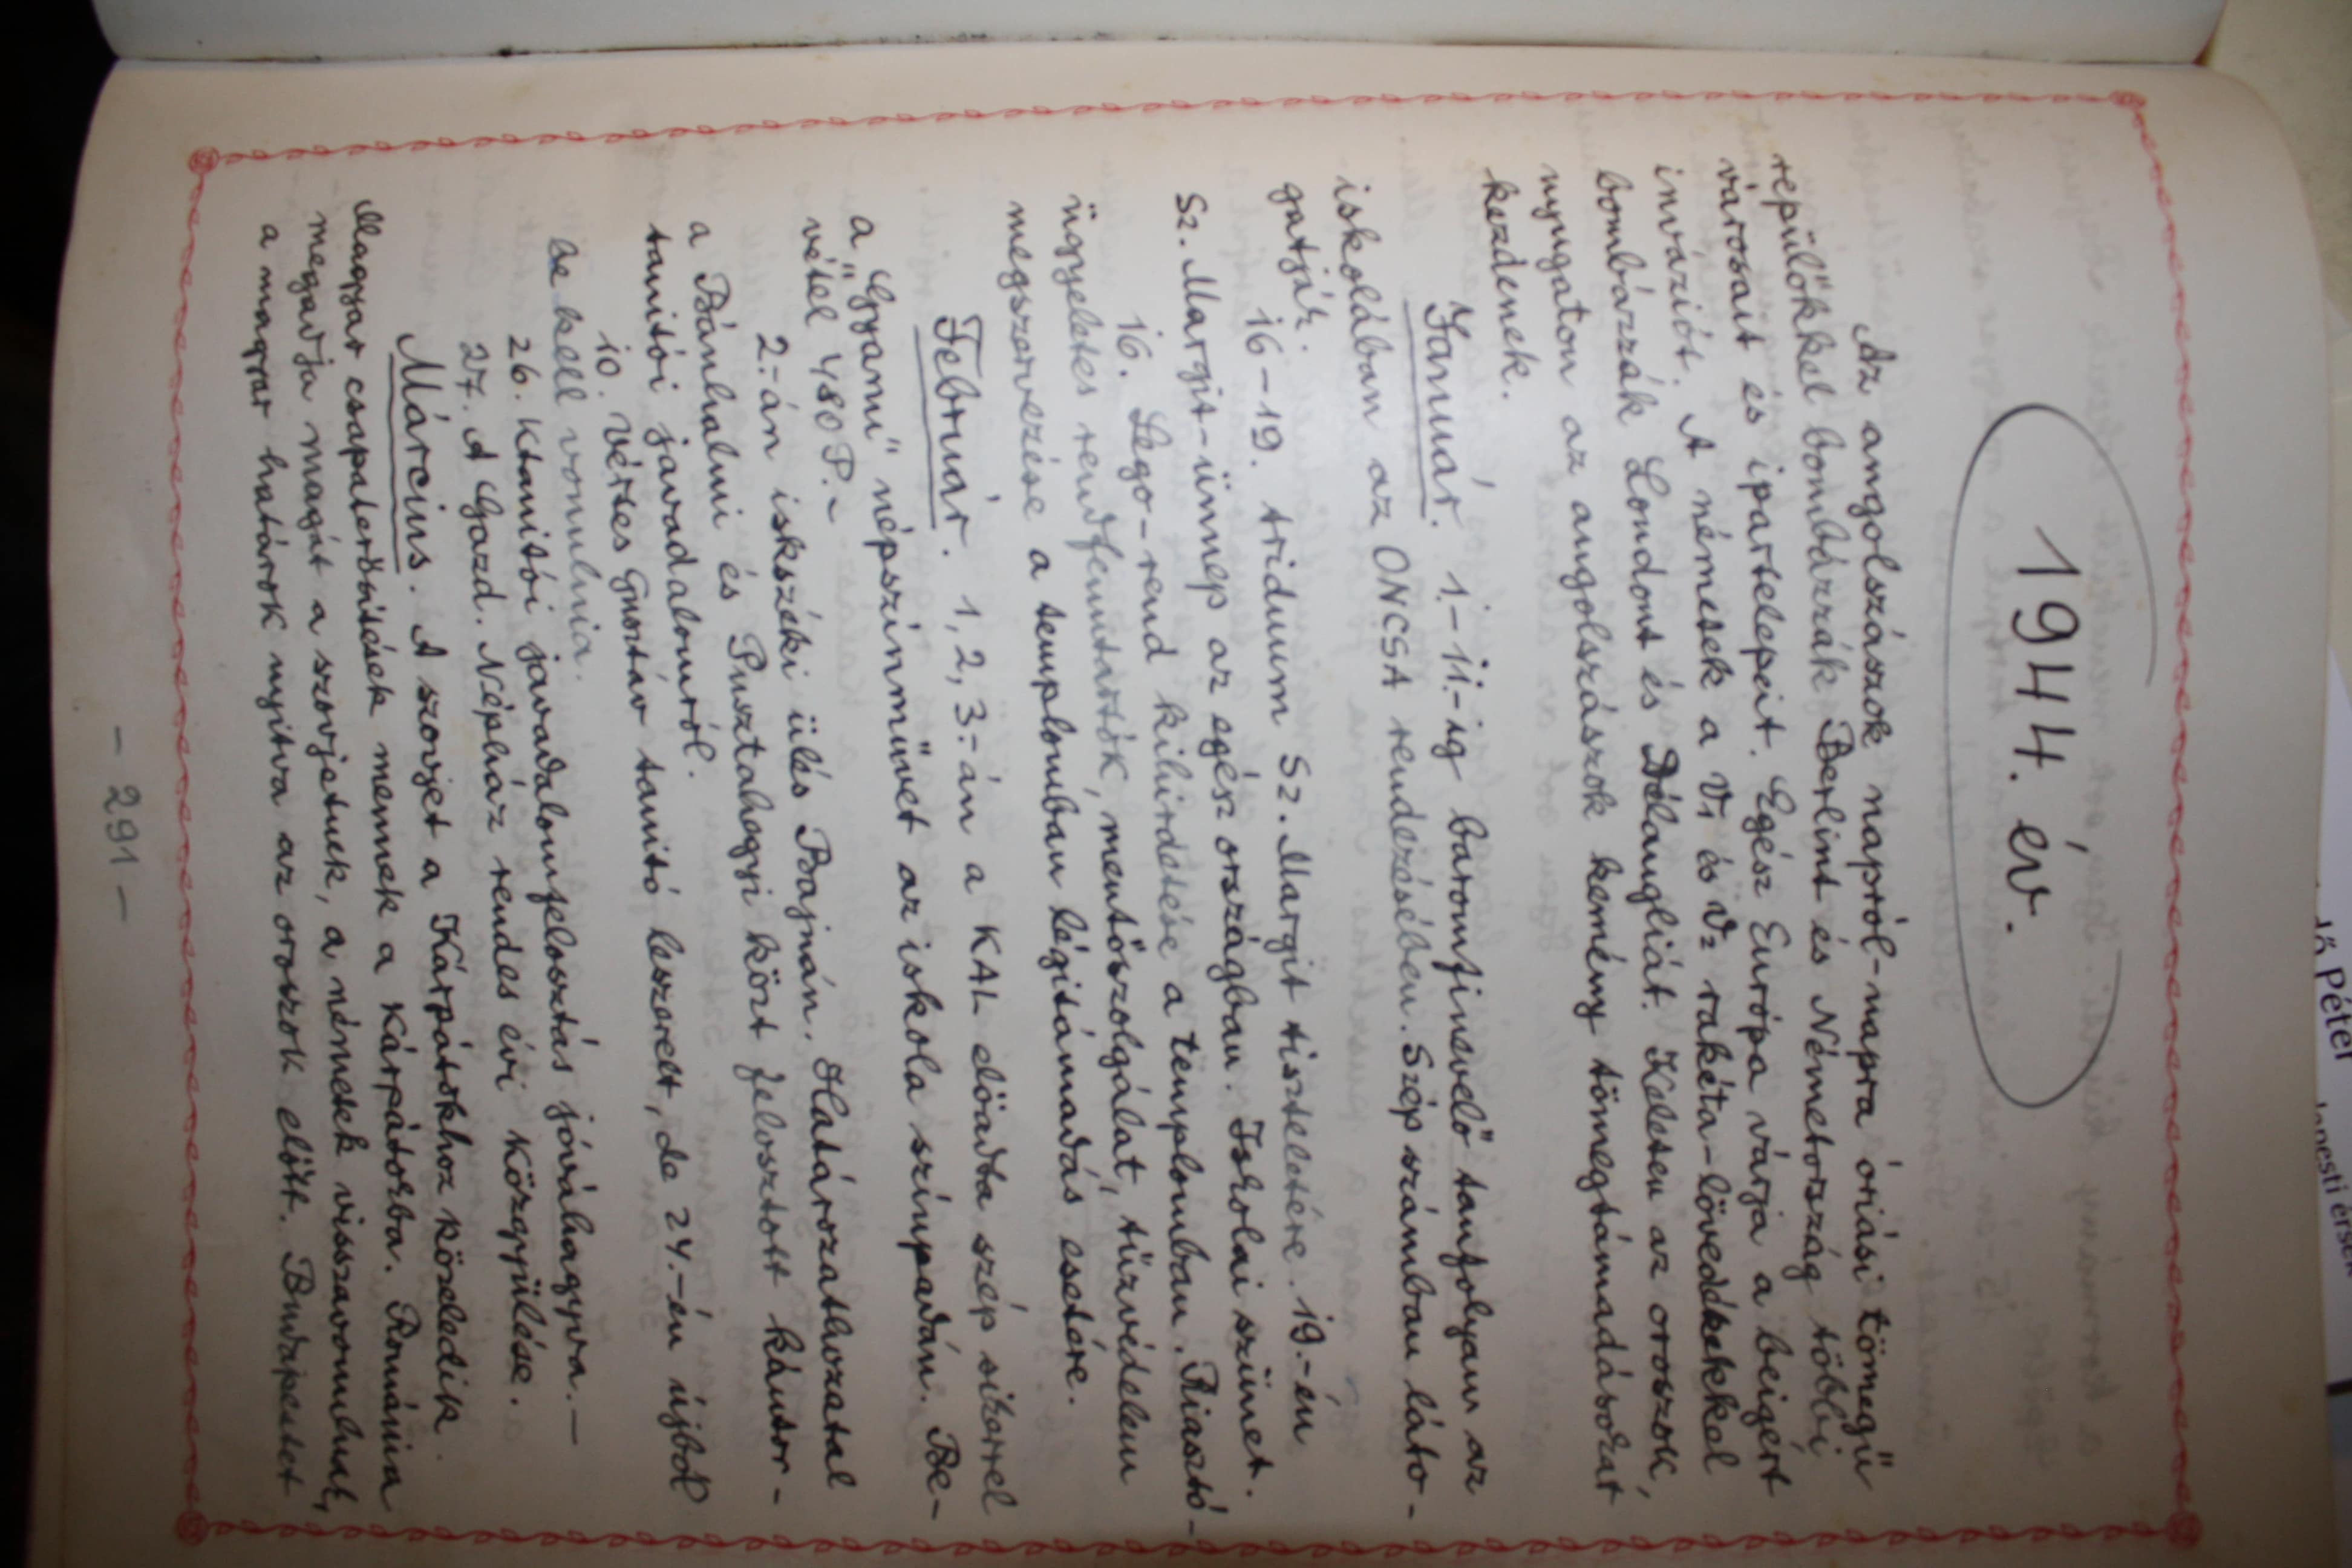 1944. év.
Az angolszászok napról-napra óriási tömegű
repülőkkel bombázzák Berlint és Németország többi
városait és ipartelepeit. Egész Európa várja a beigért
inváziót. A németek a V1 és V2 rakéta-lövedékekkel
bombázzák Londont és Délangliát. Keleten az oroszok,
nyugaton az angolszászok kemény tömegtámadásokat
kezdenek.
Január. 1.-11.-ig baromfinevelő tanfolyam az
iskolában az ONCSA rendezésében. Szép számban láto-
gatják.
16-19. triduum Sz. Margit tiszteletére. 19.-én
Sz. Margit-ünnep az egész országban. Iskolai szünet.
16. Légo-rend kihirdetése a templomban. Riasztó-
ügyeletes rendfenntartók, mentőszolgálat, tűzvédelem
megszervezése a templomban légitámadás esetére.
Február. 1, 2, 3.-án a KAL előadta szép sikerrel
a „Gyamu" népszínművet az iskola színpadán. Be-
vétel 480 P.-
2.-án iskszéki ülés Bajnán. Határozathozatal
a Bánhalmi és Pusztahegyi közt felosztott kántor-
tanítói javadalomról.
10. Vértes Gusztáv tanító leszerelt, de 24.-én újból
be kell vonulnia.
26. Ktanítói javadalomfelosztás jóváhagyva.-
27. A Gazd. Népház rendes évi közgyűlése.
Március. A szovjet a Kárpátokhoz közeledik.
Magyar csapaterősítések mennek a Kárpátokba. Románia
megadja magát a szovjetnek, a németek visszavonulnak,
a magyar határok nyitva az oroszok előtt. Budapestet
- 291 -
lő Péter